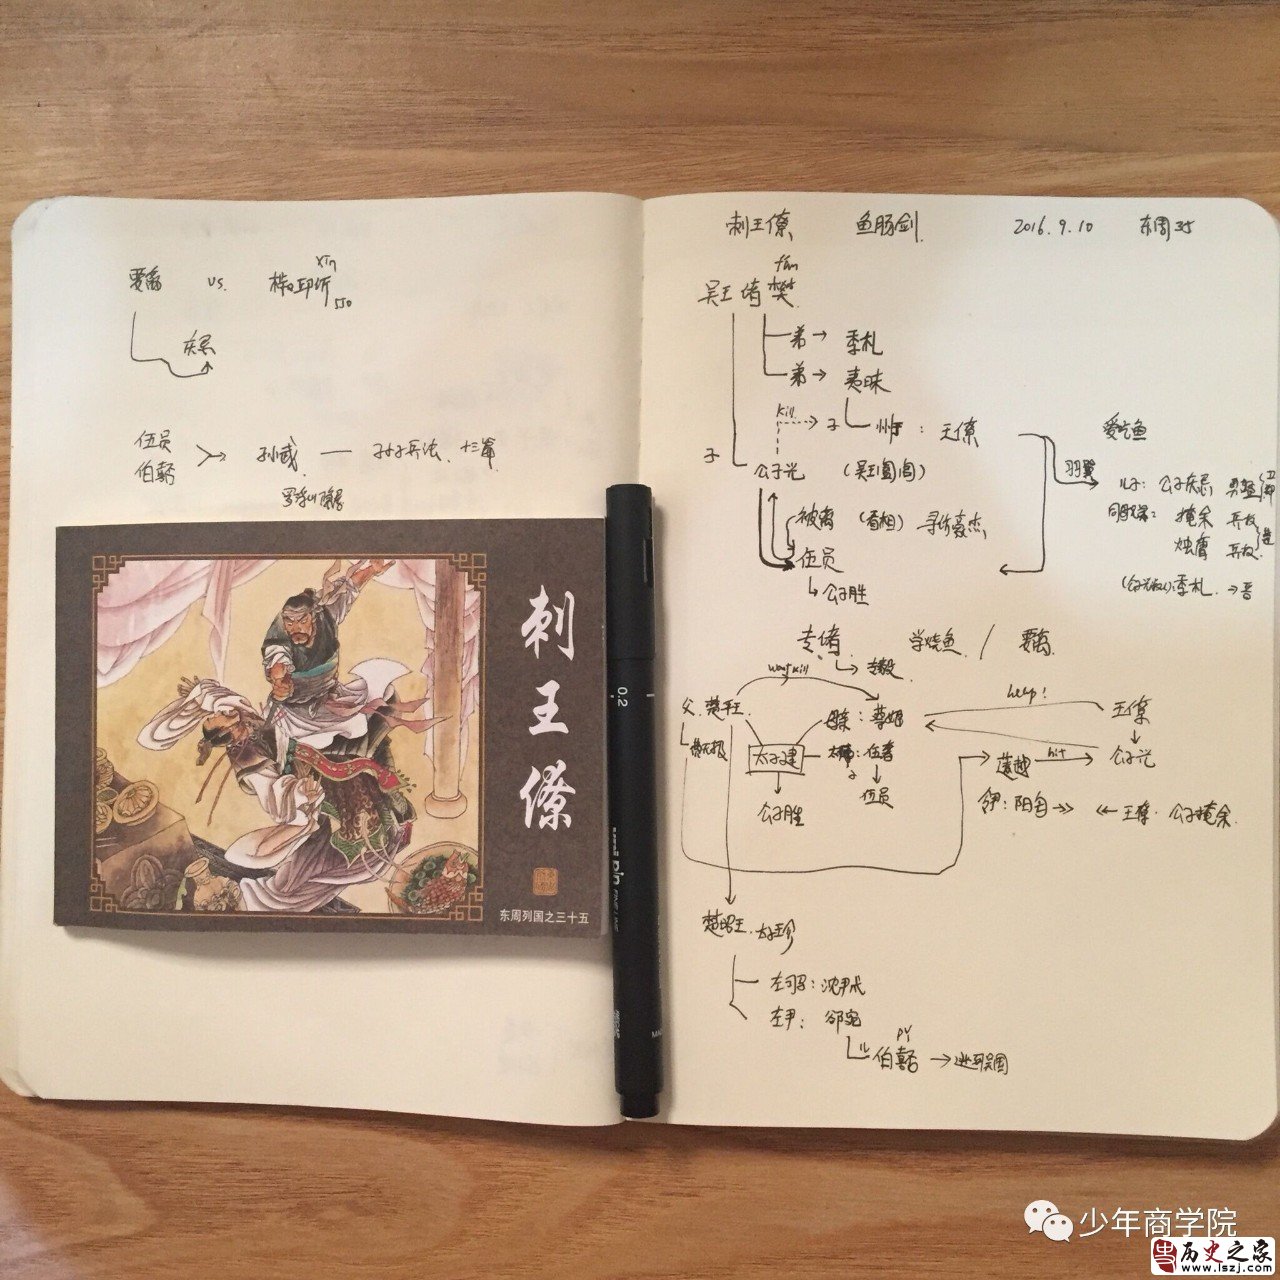 要离 vs. 椒邱䜣
xin
庆忌
伍员
伯嚭
孙武 — 孙子兵法 十三篇
罗浮山隐居
刺王僚
东周列国之三十五
0.2
uni pin
FINE LINE
刺王僚 鱼肠剑 2016.9.10 东周35
fan
吴王诸樊
弟→ 季札
弟→ 夷昧
kill
子 州于:王僚
爱吃鱼
子
公子光 (吴王阖闾)
羽翼
儿子:公子庆忌
掩余
烛庸
被离 (看相) 寻访豪杰
伍员
公子胜
季札 →晋
专诸 学烧鱼 / 要离
专毅
want kill
help!
父:楚平王
母亲:
王僚
费无极
太子建
伍奢
伍员
公子胜
薳越 hit 公子光
令尹:阳匄
王僚·公子掩余
楚昭王·太子珍
左司马:沈尹戍
左尹:郤宛
PY
伯嚭 →逃吴国
少年商学院
历史之家
www.lszj.com